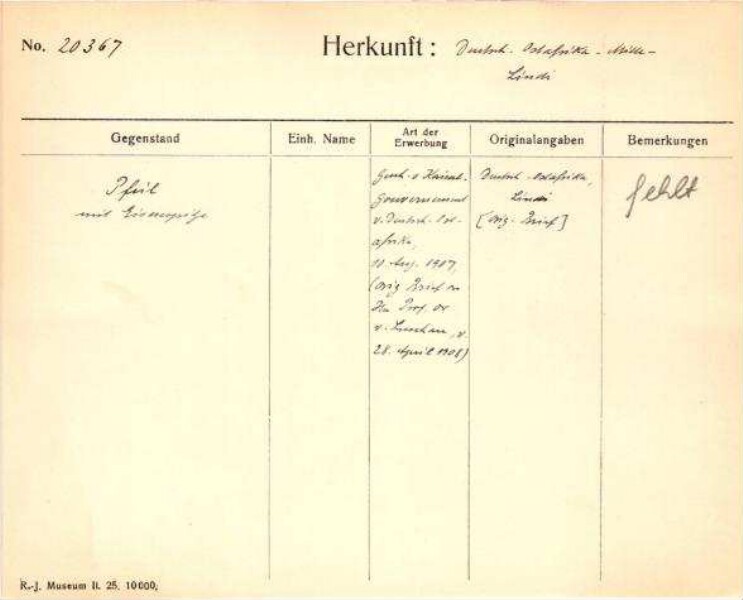 No. 20367
Herkunft: Deutsch. Ostafrika -
Lindi
Gegenstand
Einh. Name
Art der
Erwerbung
Originalangaben
Bemerkungen
Pfeil
mit Eisenspitze
Gesch. v. Kaiserl.
Gouvernement
v. Deutsch-Ost-
afrika,
10 Aug. 1907,
(orig Brief an
Hn Prof. Dr
v. Luschan, v.
28. April 1908)
Deutsch-Ostafrika,
Lindi
[orig. Brief]
fehlt
R.-J. Museum II. 25. 10000;